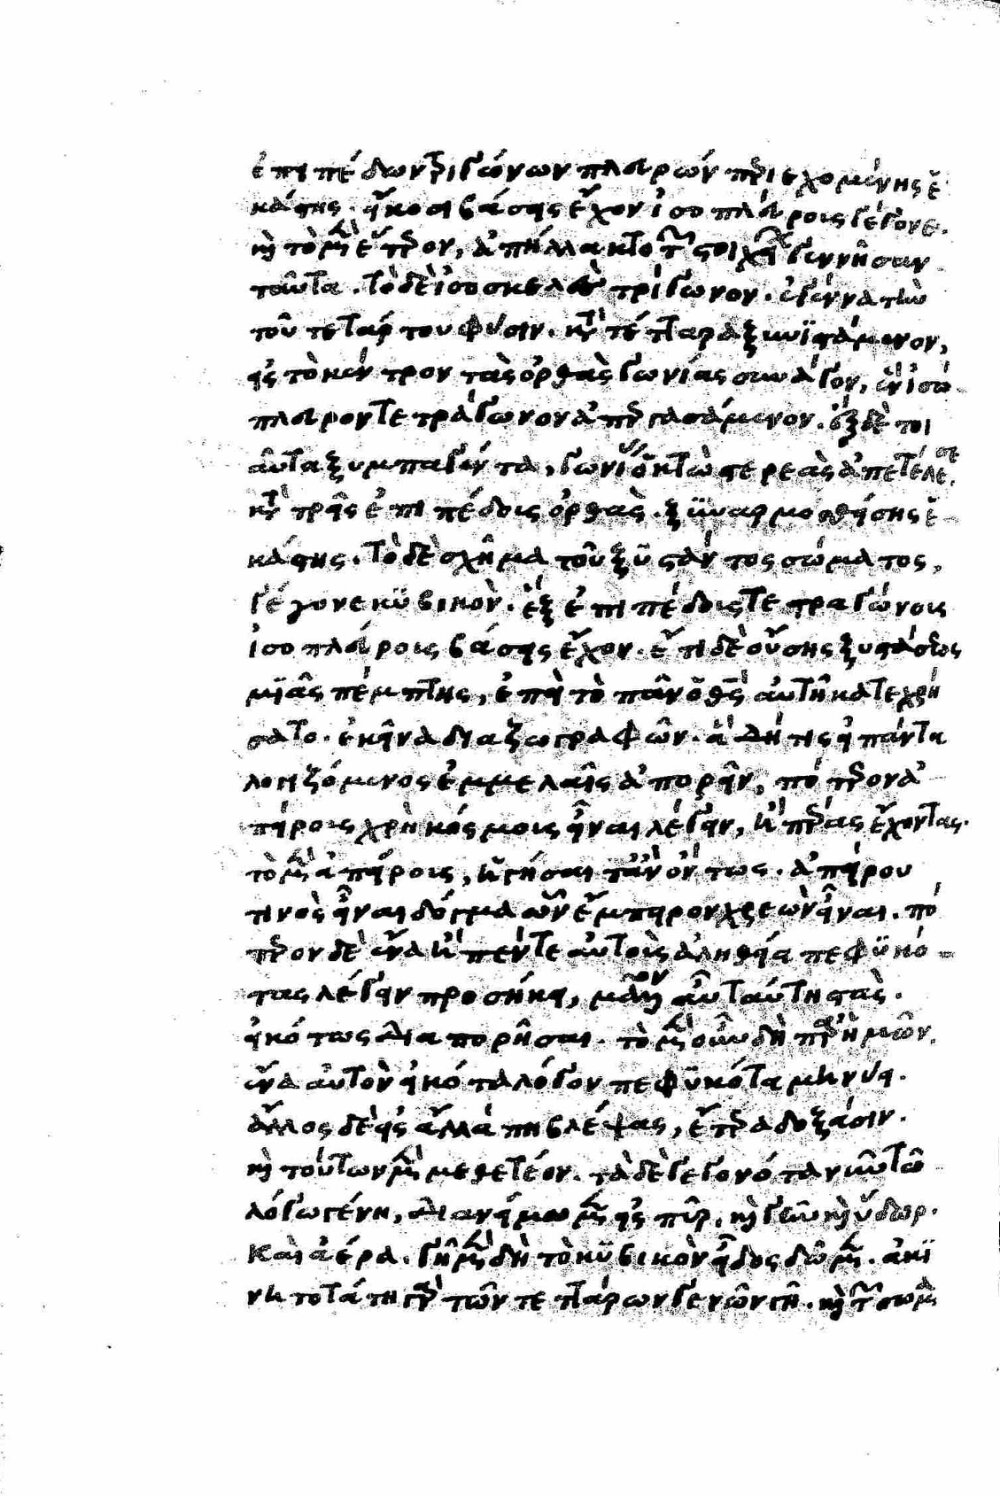 ἐπιπέδων τριγώνων πλευρῶν περιεχομένης ἑ
κάστης. εἴκοσι βάσεις ἔχον ἰσοπλεύροις γέγονε.
καὶ τὸ μὲν ἕτερον, ἀπήλλακτο τῶν στοιχείων γεννῆσαν
ταῦτα. τὸ δὲ ἰσοσκελὲς τρίγωνον. ἐγέννα τὴν
τοῦ τετάρτου φύσιν. κατὰ τέτταρα ξυνϊστάμενον,
εἰς τὸ κέντρον τὰς ὀρθὰς γωνίας συνάγον, ἓν ἰσό
πλευρον τετράγωνον ἀπεργασάμενον. ἓξ δὲ τοι
αῦτα ξυμπαγέντα, γωνίας ὀκτὼ στερεὰς ἀπετέλεσε.
κατὰ τρεῖς ἐπιπέδοις ὀρθὰς. ξϋναρμοσθείσης ἑ
κάστης. τὸ δὲ σχῆμα τοῦ ξϋστάντος σώματος,
γέγονε κϋβικὸν. ἓξ ἐπιπέδοις τετραγώνοις
ἰσοπλεύροις βάσεις ἔχον. ἔτι δὲ οὔσης ξυστάσεως
μϊᾶς πέμπτης, ἐπὶ τὸ πᾶν ὁ θεὸς αὐτῆ κατεχρή
σατο. ἐκεῖνα διαζωγραφῶν. ἃ δή τις εἰ πάντα
λογιζόμενος ἐμμελῶς ἀποροῖ, πότερον ἀ
πείρους χρὴ κόσμους εἶναι λέγειν, ἢ πέρας ἔχοντας.
τὸ μὲν ἀπείροις, ἡγήσαιτ' ἂν ὄντως. ἀπείρου
τινὸς εἶναι δόγμα ὧν ἔμπειρον χρεὼν εἶναι. πό
τερον δὲ ἕνα ἢ πέντε αὐτοὺς ἀληθεία πεφϋκό-
τας λέγειν προσήκει, μᾶλλον ἂν ταύτη στὰς.
εἰκότως διαπορῆσαι. τὸ μὲν οὖν δὴ παρ' ἡμῶν.
ἕνα αὐτὸν εἰκότα λόγον πεφϋκότα μηνύει.
ἄλλος δὲ εἰς ἄλλα πη βλέψας, ἕτερα δοξάσει.
καὶ τούτων μὲν μεθετέον. τὰ δὲ γεγονότα νῦν τῶ
λόγω γένη, διανείμωμεν εἰς πῦρ, καὶ γῆν καὶ ὕδωρ.
καὶ ἀέρα. γῆ μὲν δὴ τὸ κϋβικὸν εἶδος δῶμεν. ἀκϊ
νητοτάτη γὰρ τῶν τεττάρων γενῶν γῆ. καὶ τῶν σωμάτων